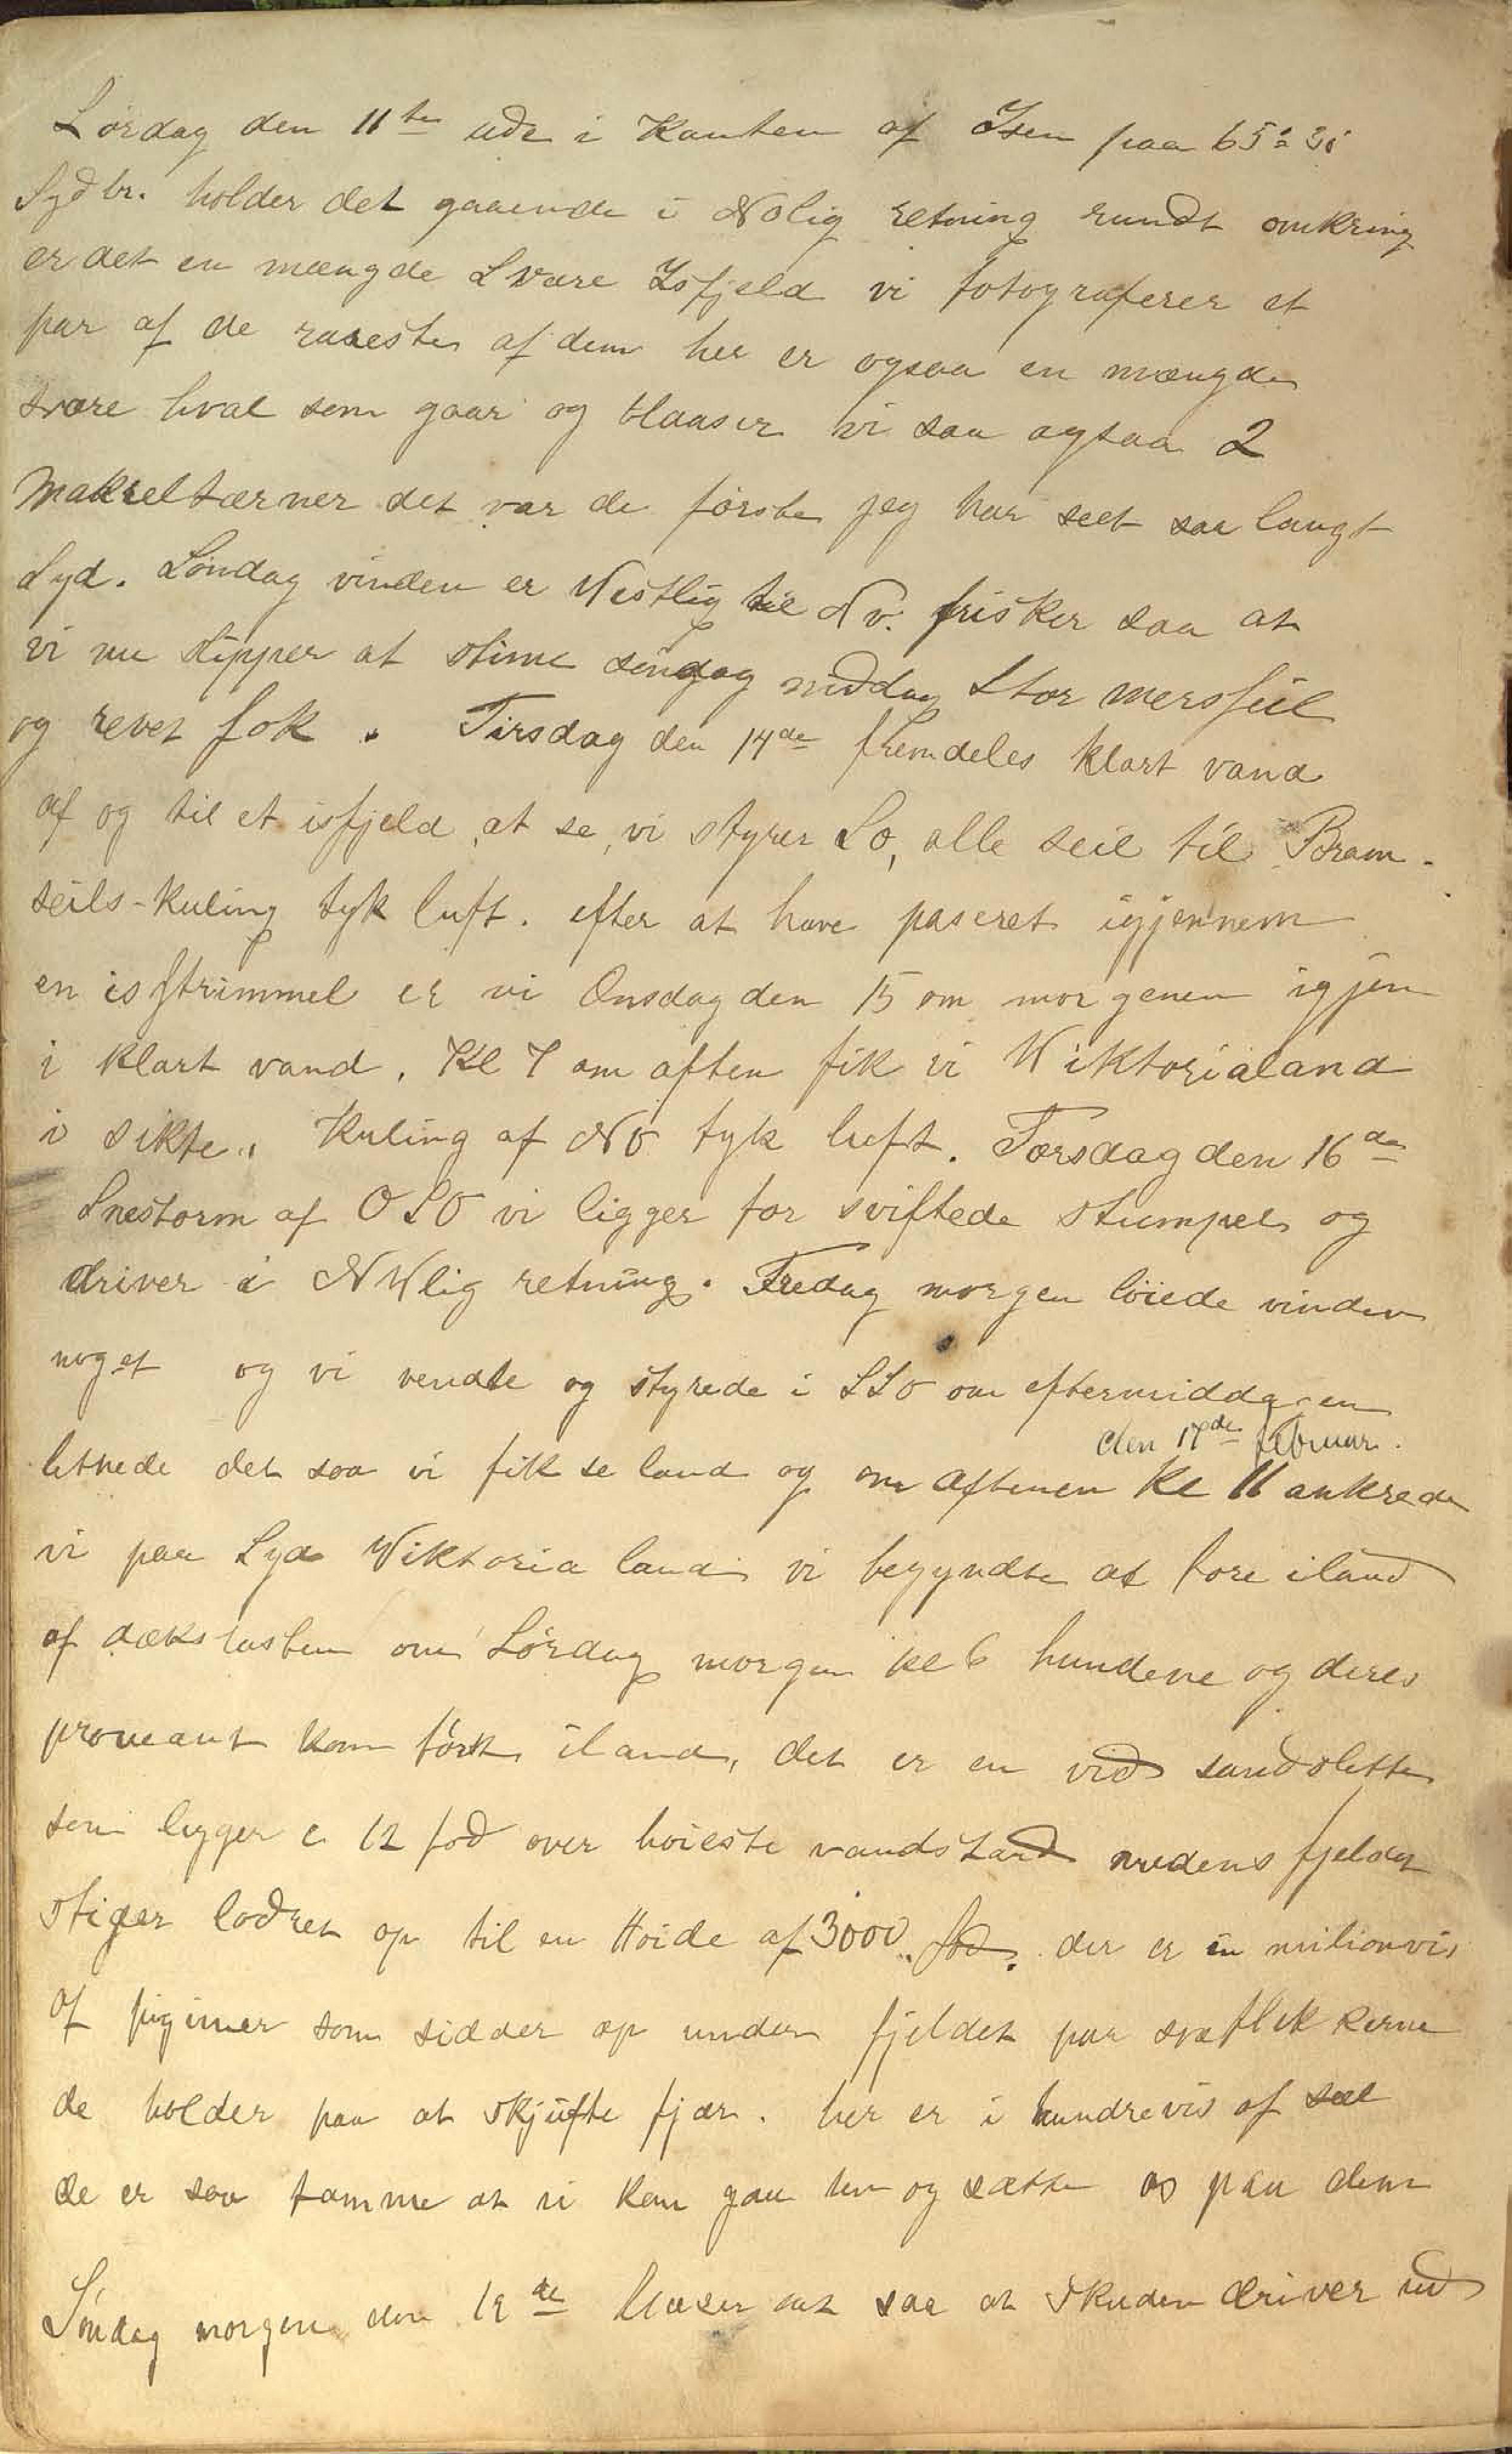 Lørdag den 11te ude i Kanten af Isen paa 65° 30
Sydbr. holder det gaaende i Nolig retning rundt omkring
er det en mængde Svære Isfjeld vi fotograferer et
par af de raseste af dem her er ogsaa en mængde
svære hval som gaar og blaaser vi saa ogsaa 2
Makreltærner det var de første jeg har seet saa langt
Syd. Søndag vinden er Westlig til Nv. frisker saa at
vi nu slipper at stime søndag middag Stor mersseil
og revet fok. Tirsdag den 14de fremdeles klart vand
af og til et isfjeld at se, vi styrer So, alle seil til Bram-
seils-kuling tyk luft. efter at have paseret igjennem
en isstrimmel er vi Onsdag den 15 om morgenen igjen
i klart vand. Kl 7 om aften fik vi Wiktorialand
i sikte. Kuling af NO tyk luft. Torsdag den 16de
Snestorm af OSO vi ligger for sviftede stumper og
driver i NWlig retning. Fredag morgen løiede vinden
noget og vi vendte og styrede i SSO om eftermiddagen
den 17de februar.
letnede det saa vi fik se land og om aftenen kl 11 ankrede
vi paa Syd Wiktoria land vi begyndte at føre iland
af dækslasten om Lørdag morgen kl 6 hundene og deres
proveant kom først iland, det er en vid sandslette
som ligger c 12 fod over høieste vandstand medens fjeldet
stiger lodret op til en Høide af 3000 fod. der er in milionvis
af pigviner som sidder op under fjeldet paa sneflekkerne
de holder paa at skjufte fjær. her er i hundrevis af sæl
de er saa tamme at vi kan gaa hen og sætte os paa dem
Søndag morgen den 19de blæser det saa at Skuden driver ud